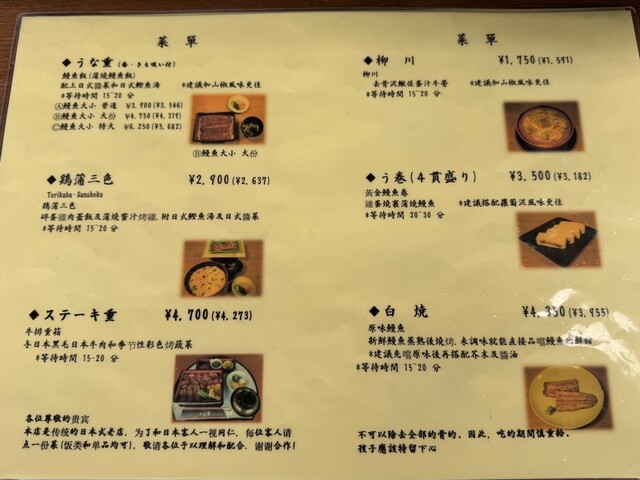 菜單
◆うな重(香・きも吸い付)
鰻魚飯(蒲燒鰻魚飯)
配上日式醬菜和日式鰻魚湯 *建議加山椒風味更佳
*等待時間 15~20 分
Ⓐ鰻魚大小 普通 ¥3,900(¥3,546)
Ⓑ鰻魚大小 大份 ¥4,750(¥4,319)
Ⓒ鰻魚大小 特大 ¥6,250(¥5,682)
Ⓑ鰻魚大小 大份
◆鶏蒲三色 ¥2,900(¥2,637)
Torikaba-Sanshoku
鶏蒲三色
碎蛋雞肉蓋飯及蒲燒蜜汁烤雞,附日式鰹魚湯及日式醬菜
*等待時間 15~20 分
◆ステーキ重 ¥4,700(¥4,273)
牛排重箱
与日本黑毛日本牛肉和季节性彩色烤蔬菜
*等待時間 15-20 分
各位尊敬的贵宾
本店是传统的日本式老店,为了和日本客人一视同仁,每位客人请
点一份菜(饭类和单品均可),敬请各位予以理解和配合,谢谢合作!
菜單
◆柳川 ¥1,750(¥1,591)
柳川
去骨泥鰍佐蛋汁牛蒡 *建議加山椒風味更佳
*等待時間 15~20 分
◆う巻(4貫盛り) ¥3,500(¥3,182)
黃金鰻魚卷
雞蛋燒裹蒲燒鰻魚 *建議搭配蘿蔔泥風味更佳
*等待時間 20~30 分
◆白焼 ¥4,350(¥3,955)
原味鰻魚
新鮮鰻魚蒸熟後燒烤,未調味就能直接品嚐鰻魚的鮮醇
*建議先嚐原味後再搭配芥末及醬油
*等待時間 15~20 分
不可以除去全部的骨的。因此,吃的期間慎重拎。
孩子應該特留下心